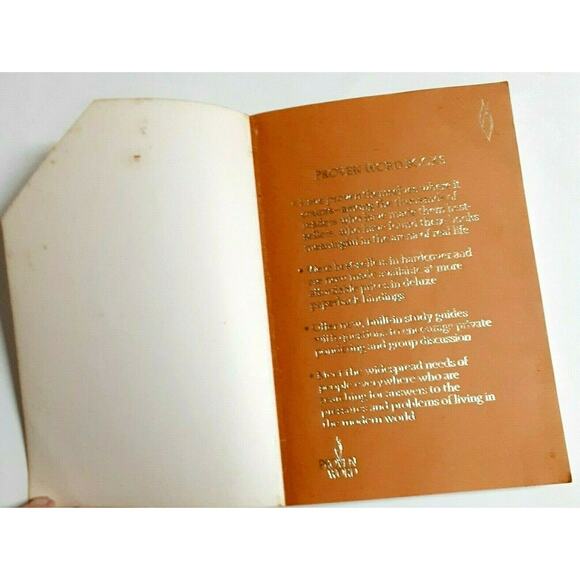 PROVEN WORD BOOKS
• Have proven themselves where it
counts—among the thousands of
readers who have made them best-
sellers, who have found these books
meaningful in the arena of real life
• Were best-sellers in hardcover and
are now made available at more
affordable prices in deluxe
paperback bindings
• Offer new, built-in study guides
with questions to encourage private
pondering and group discussion
• Meet the widespread needs of
people everywhere who are
searching for answers to the
pressures and problems of living in
the modern world
PROVEN
WORD